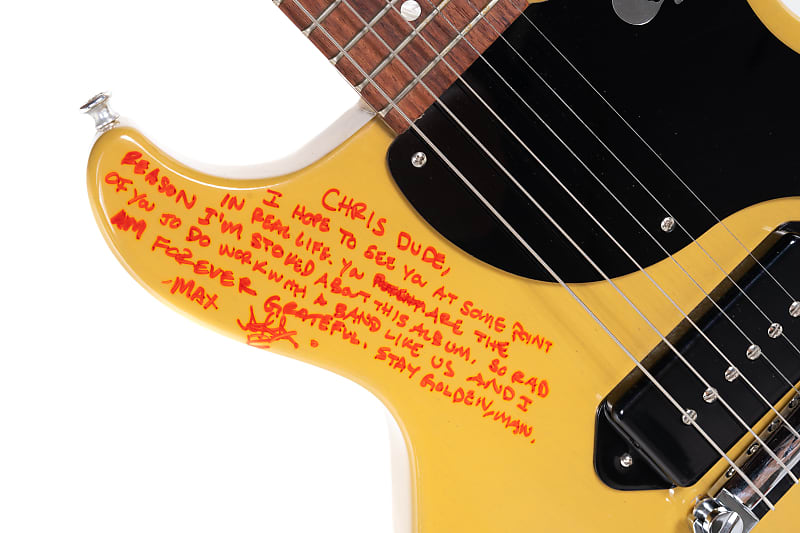 CHRIS DUDE,
I HOPE TO SEE YOU AT SOME POINT
IN REAL LIFE. YOU ARE THE
REASON I'M STOKED ABOUT THIS ALBUM. SO RAD
OF YOU TO DO WORK WITH A BAND LIKE US AND I
AM FOREVER GRATEFUL. STAY GOLDEN, MAN.
-MAX